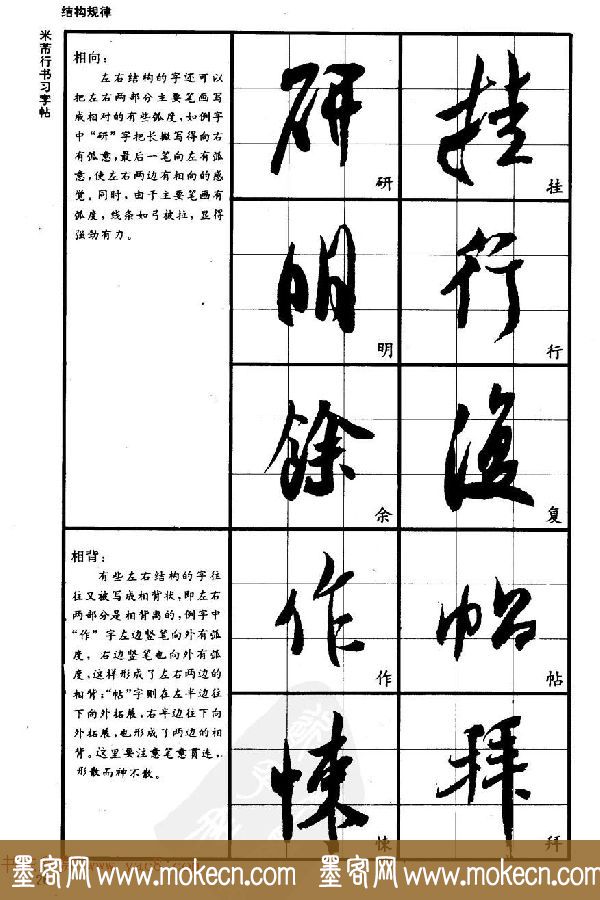 结构规律
米芾行书习字帖
相向：
左右结构的字还可以
把左右两部分主要笔画写
成相对的有些弧度，如例字
中“研”字把长撇写得向右
有弧意，最后一笔向左有弧
意，使左右两边有相向的感
觉。同时，由于主要笔画有
弧度，线条如弓被拉，显得
强劲有力。
研 挂
研 挂
明 行
明 行
餘 復
余 复
相背：
有些左右结构的字往
往又被写成相背状，即左右
两部分是相背离的，例字中
“作”字左边竖笔向外有弧
度，右边竖笔也向外有弧
度，这样形成了左右两边的
相背；“帖”字则在左半边往
下向外拓展，右半边往下向
外拓展，也形成了两边的相
背。这里要注意笔意贯连，
形散而神不散。
作 帖
作 帖
悚 拜
悚 拜
墨客网 www.mokecn.com 墨客网 www.mokecn.com